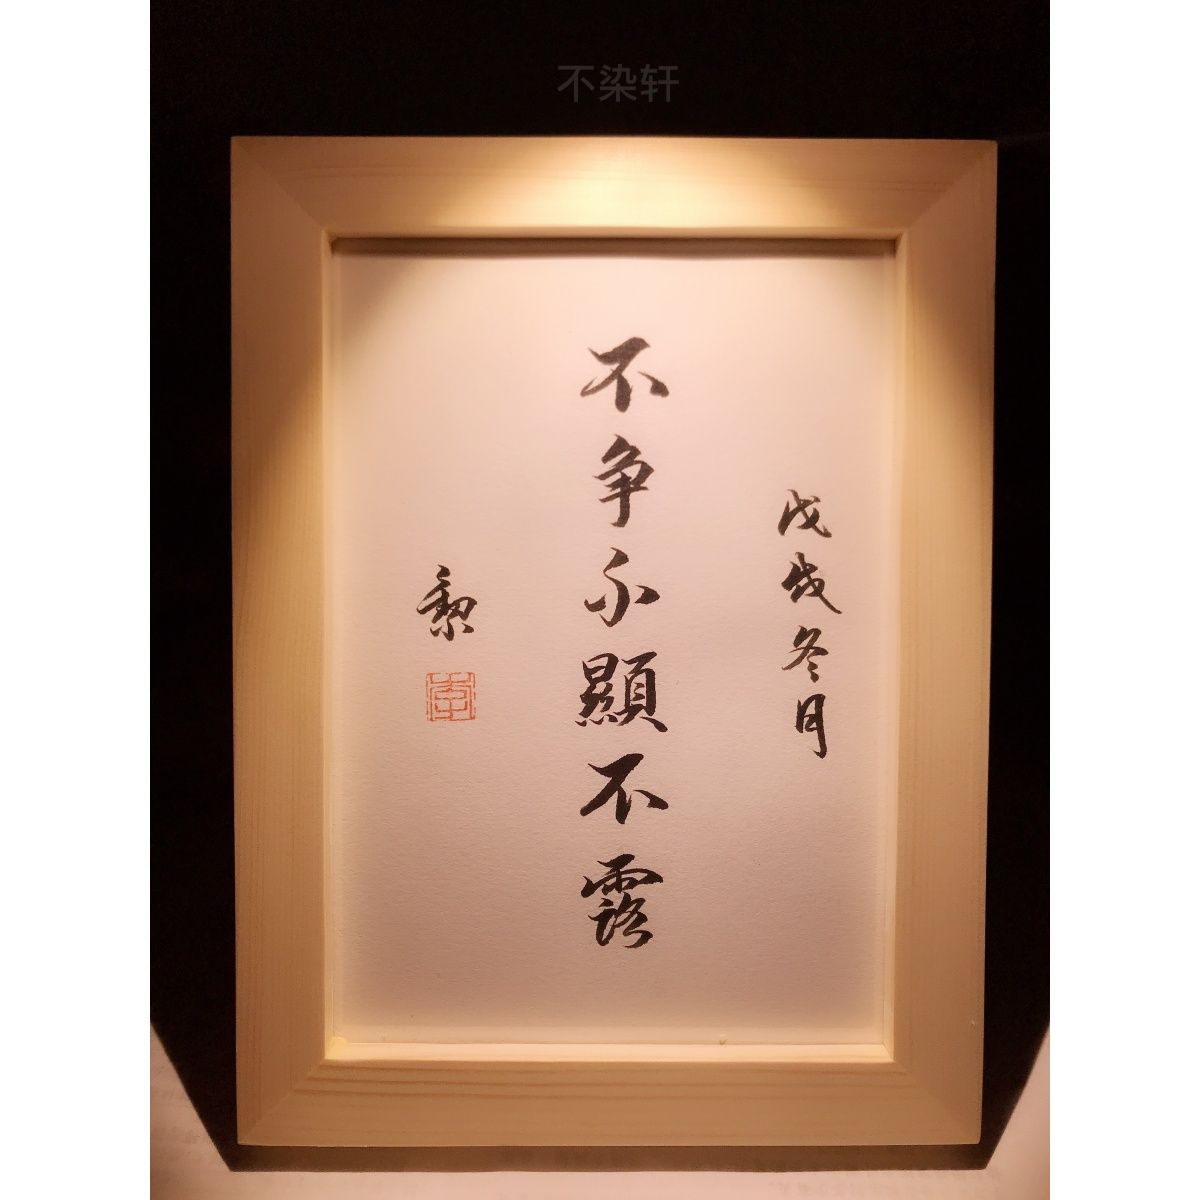 不染轩
戊戌冬月
不争不顯不露
黎